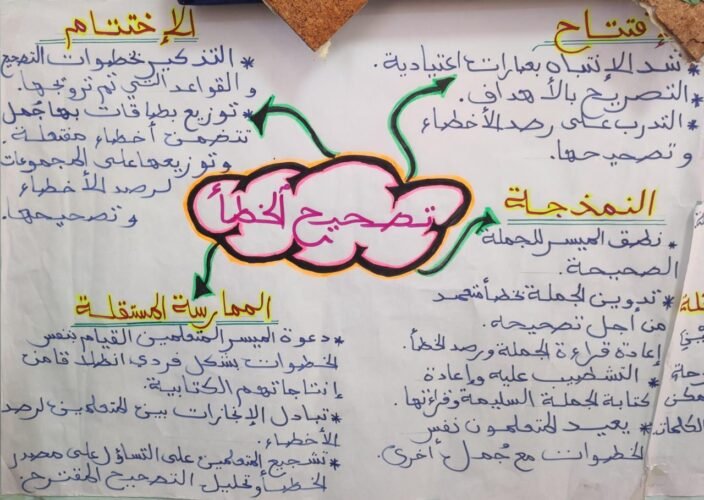 تصحيح الخطأ
إفتتاح
* شد الإنتباه بعبارات اعتيادية.
* التصريح بالأهداف.
* التدرب على رصد الأخطاء
وتصحيحها.
النمذجة
* نطق الميسر للجملة
الصحيحة.
* تدوين الجملة بخطأ متعمد
من أجل تصحيحه.
إعادة قراءة الجملة ورصد الخطأ.
* التشطيب عليه وإعادة
كتابة الجملة السليمة وقراءتها.
* يعيد المتعلمون نفس
الخطوات مع جُمل أخرى.
الممارسة المستقلة
* دعوة الميسر المتعلمين القيام بنفس
الخطوات بشكل فردي انطلاقا من
إنتاجاتهم الكتابية.
* تبادل الإنجازات بين المتعلمين لرصد
الأخطاء.
* تشجيع المتعلمين على التساؤل على مصدر
الخطأ وتحليل التصحيح المقترح.
الإختتام
* التذكير بخطوات التصحيح
والقواعد التي تم ترويجها.
* توزيع بطاقات بها جُمل
تتضمن أخطاء مفتعلة.
وتوزيعها على المجموعات
لرصد الأخطاء
وتصحيحها.